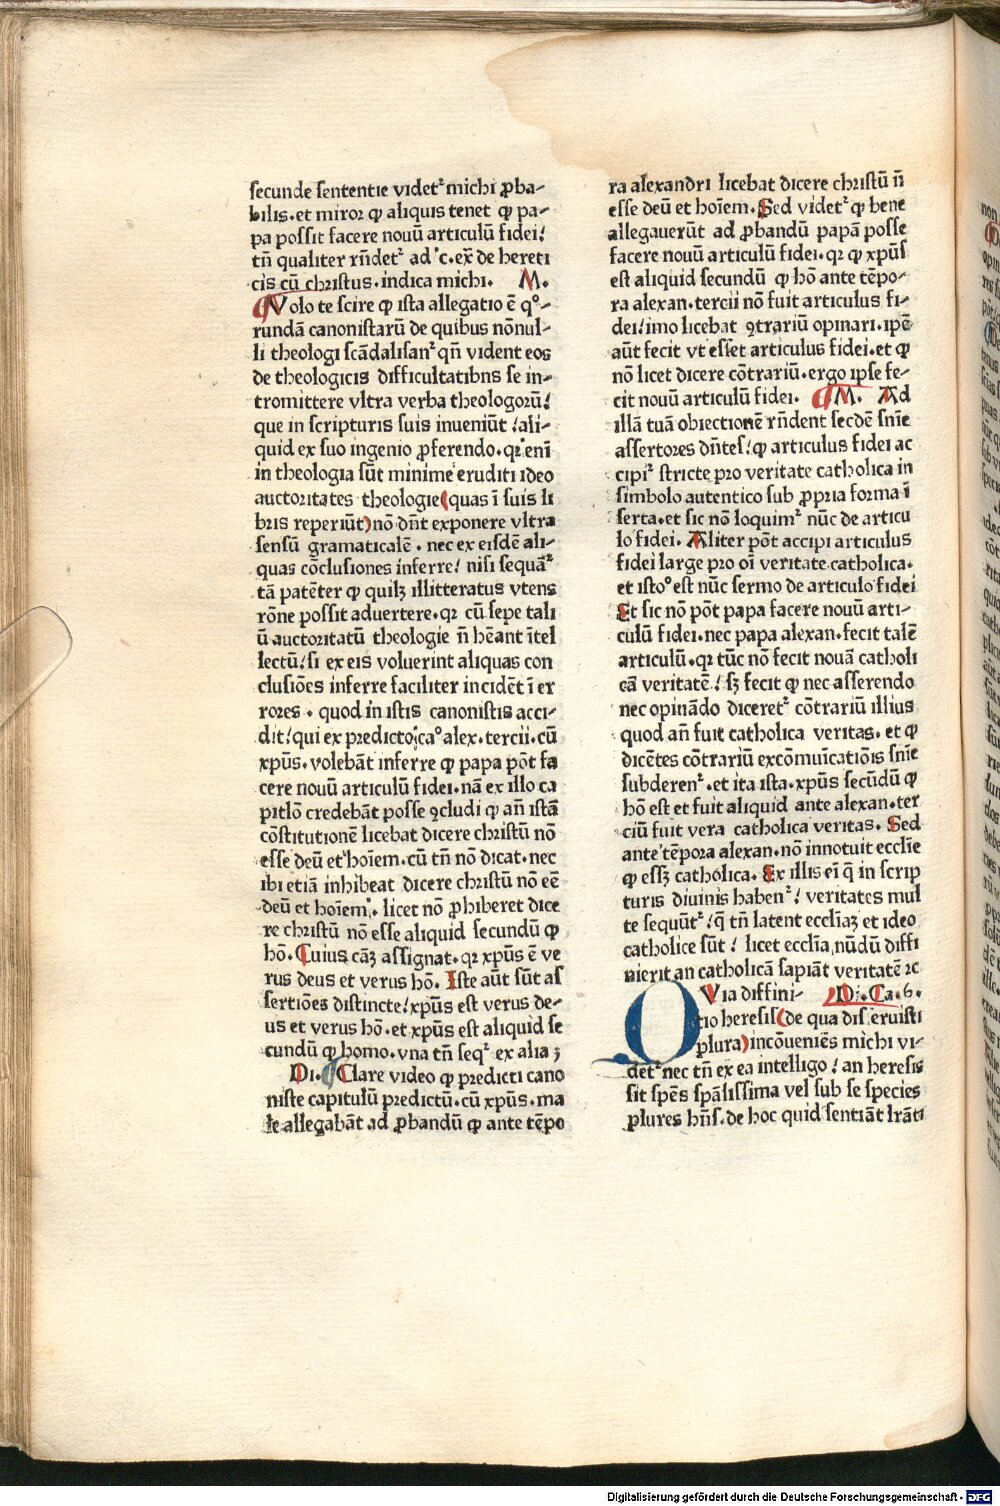 secunde sententie videtᷣ michi ꝓba-
bilis.et miror ꝙ aliquis tenet ꝙ pa-
pa possit facere nouū articulū fidei!
tn̄ qualiter rn̄detᷣ ad c.ex̄ de hereti
cis cū christus.indica michi. M.
Volo te scire ꝙ ista allegatio ē qº-
rundā canonistarū de quibus nōnul-
li theologi scādalisanᷣ qn̄ vident eos
de theologicis difficultatibns se in-
tromittere vltra verba theologorū!
que in scripturis suis inueniūt !ali-
quid ex suo ingenio ꝓferendo.qꝛ enī
in theologia sūt minime eruditi ideo
auctoritates theologie(quas ī suis li
bris reperiūt)nō dn̄t exponere vltra
sensū gramaticalē . nec ex eisdē ali-
quas cōclusiones inferre! nisi sequāᷣ
tā patēter ꝙ quilꝫ illitteratus vtens
rōne possit aduertere.qꝛ cū sepe tali
ū auctoritatū theologie n̄ hēant ītel
lectū!si ex eis voluerint aliquas con
clusiōes inferre faciliter incidēt ī er
rores . quod in istis canonistis acci-
dit!qui ex predicto caº alex.tercii.cū
xpūs.volebāt inferre ꝙ papa pōt fa
cere nouū articulū fidei.nā ex illo ca
pitlō credebāt posse ꝯcludi ꝙ an̄ istā
cōstitutionē licebat dicere christū nō
esse deū et hoīem.cū tn̄ nō dicat.nec
ibi etiā inhibeat dicere christū nō eē
deū et hoīem. licet nō ꝓhiberet dice
re christū nō esse aliquid secundū ꝙ
hō.Cuius cāꝫ assignat.qꝛ xpūs ē ve
rus deus et verus hō. Iste aūt sūt as
sertiōes distincte!xpūs est verus de-
us et verus hō.et xpūs est aliquid se
cundū ꝙ homo.vna tn̄ seqᷣ ex alia ꝫ
Di. Clare video ꝙ predicti cano
niste capitulū predictū.cū xpūs.ma
le allegabāt ad ꝓbandū ꝙ ante tēpo
ra alexandri licebat dicere christū n̄
esse deū et hoīem.Sed videtᷣ ꝙ bene
allegauerūt ad ꝓbandū papā posse
facere nouū articulū fidei.qꝛ ꝙ xpūs
est aliquid secundū ꝙ hō ante tēpo-
ra alexan.tercii nō fuit articulus fi-
dei!imo licebat ꝯtrariū opinari.ipē
aūt fecit vt esset articulus fidei.et ꝙ
nō licet dicere cōtrariū.ergo ipse fe-
cit nouū articulū fidei. M. Ad
illā tuā obiectionē rn̄dent secdē sn̄ie
assertores dn̄tes!ꝙ articulus fidei ac
cipiᷣ stricte pro veritate catholica in
simbolo autentico sub ꝓpria forma ī
serta.et sic nō loquimᷣ nūc de articu
lo fidei. Aliter pōt accipi articulus
fidei large pro oī veritate catholica.
et istoº est nūc sermo de articulo fidei
Et sic nō pōt papa facere nouū arti-
culū fidei.nec papa alexan.fecit talē
articulū.qꝛ tūc nō fecit nouā catholi
cā veritatē! sꝫ fecit ꝙ nec asserendo
nec opinādo diceretᷣ cōtrariū illius
quod an̄ fuit catholica veritas. et ꝙ
dicētes cōtrariū excōmuīcatiōis sn̄ie
subderenᷣ.et ita ista.xpūs secūdū ꝙ
hō est et fuit aliquid ante alexan.ter
ciū fuit vera catholica veritas. Sed
ante tēpora alexan.nō innotuit ecclīe
ꝙ essꝫ catholica. Ex illis eī q̄ in scrip
turis diuinis habenᷣ! veritates mul
te sequūtᷣ!q̄ tn̄ latent ecclīaꝫ et ideo
catholice sūt ! licet ecclīa nūdū diffi
nierit an catholicā sapiāt veritatē ꝛc
OVia diffini- Di. Ca.6.
tio heresis(de qua disseruisti
plura)incōueniēs michi vi-
detᷣ nec tn̄ ex ea intelligo! an heresis
sit spēs spālissima vel sub se species
plures hn̄s.de hoc quid sentiāt lrāti
Digitalisierung gefördert durch die Deutsche Forschungsgemeinschaft - DFG